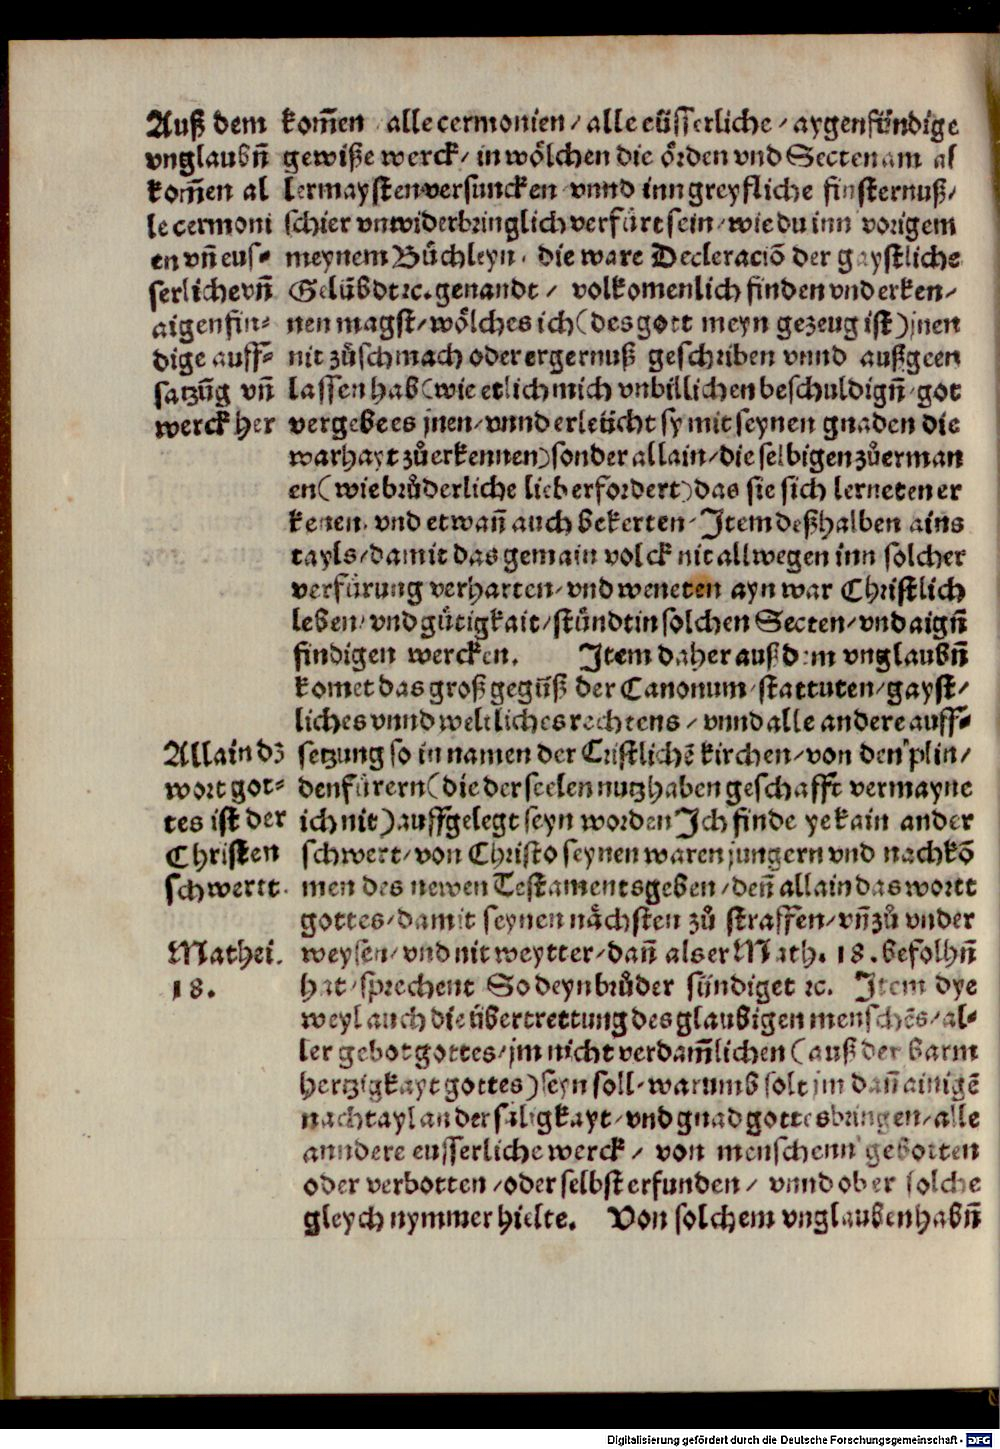 Auß dem
vnglaubn̄
kom̄en al
le cermoni
en vn̄ eus⸗
serliche vn̄
aigenfin⸗
dige auff⸗
satzūg vn̄
werck her
kom̄en alle cermonien / alle eüsserliche / aygenfündige
gewiße werck / in wölchen die örden vnd Secten am al
lermaysten versuncken vnnd inn greyfliche finsternuß /
schier vnwiderbringlich verfürt sein / wie du inn vorigem
meynem Bůchleyn / die ware Decleraciō der gaystliche
Gelübdt ꝛc. genandt / volkomenlich finden vnd erken /
nen magst / wölches ich (des gott meyn gezeug ist) jnen
nit zůschmach oder ergernuß geschriben vnnd außgeen
lassen hab (wie etlich mich vnbillichen beschuldign̄ / got
vergebe es jnen / vnnd erleücht sy mit seynen gnaden die
warhayt zůerkennen) sonder allain / die selbigen zůerman
en (wie brůderliche lieb erfordert) das sie sich lerneten er
kenen / vnd etwan̄ auch bekerten / Item deßhalben ains
tayls / damit das gemain volck nit allwegen inn solcher
verfürung verharten / vnd weneten ayn war Christlich
leben / vnd gütigkait / stündt in solchen Secten / vnd aign̄
findigen wercken. Item daher auß dem vnglaubn̄
komet das groß gegüß der Canonum / stattuten / gayst /
liches vnnd weltliches rechtens / vnnd alle andere auff⸗
Allain dz
wort got⸗
tes ist der
Christen
schwertt.
setzung so in namen der Cristlichē kirchen / von den plin /
denfürern (die der seelen nutz haben geschafft vermayne
ich nit) auffgelegt seyn worden Ich finde ye kain ander
schwert / von Christo seynen waren jungern vnd nachkō
men des newen Testaments geben / den̄ allain das wortt
gottes / damit seynen nächsten zů straffen / vn̄ zů vnder
Mathei.
18.
weysen / vnd nit weytter / dan̄ als er Math. 18. befolhn̄
hat / sprechent So deyn brůder sündiget ꝛc. Item dye
weyl auch die übertrettung des glaubigen menschēs / al⸗
ler gebot gottes / jm nicht verdam̄lichen (auß der barm
hertzigkayt gottes) seyn soll / warumb solt jm dan̄ ainigē
nachtayl an der säligkayt / vnd gnad gottes bringen / alle
anndere eusserliche werck / von menschenn gebotten
oder verbotten / oder selbst erfunden / vnnd ob er solche
gleych nymmer hielte. Von solchem vnglauben habn̄
Digitalisierung gefördert durch die Deutsche Forschungsgemeinschaft - DFG